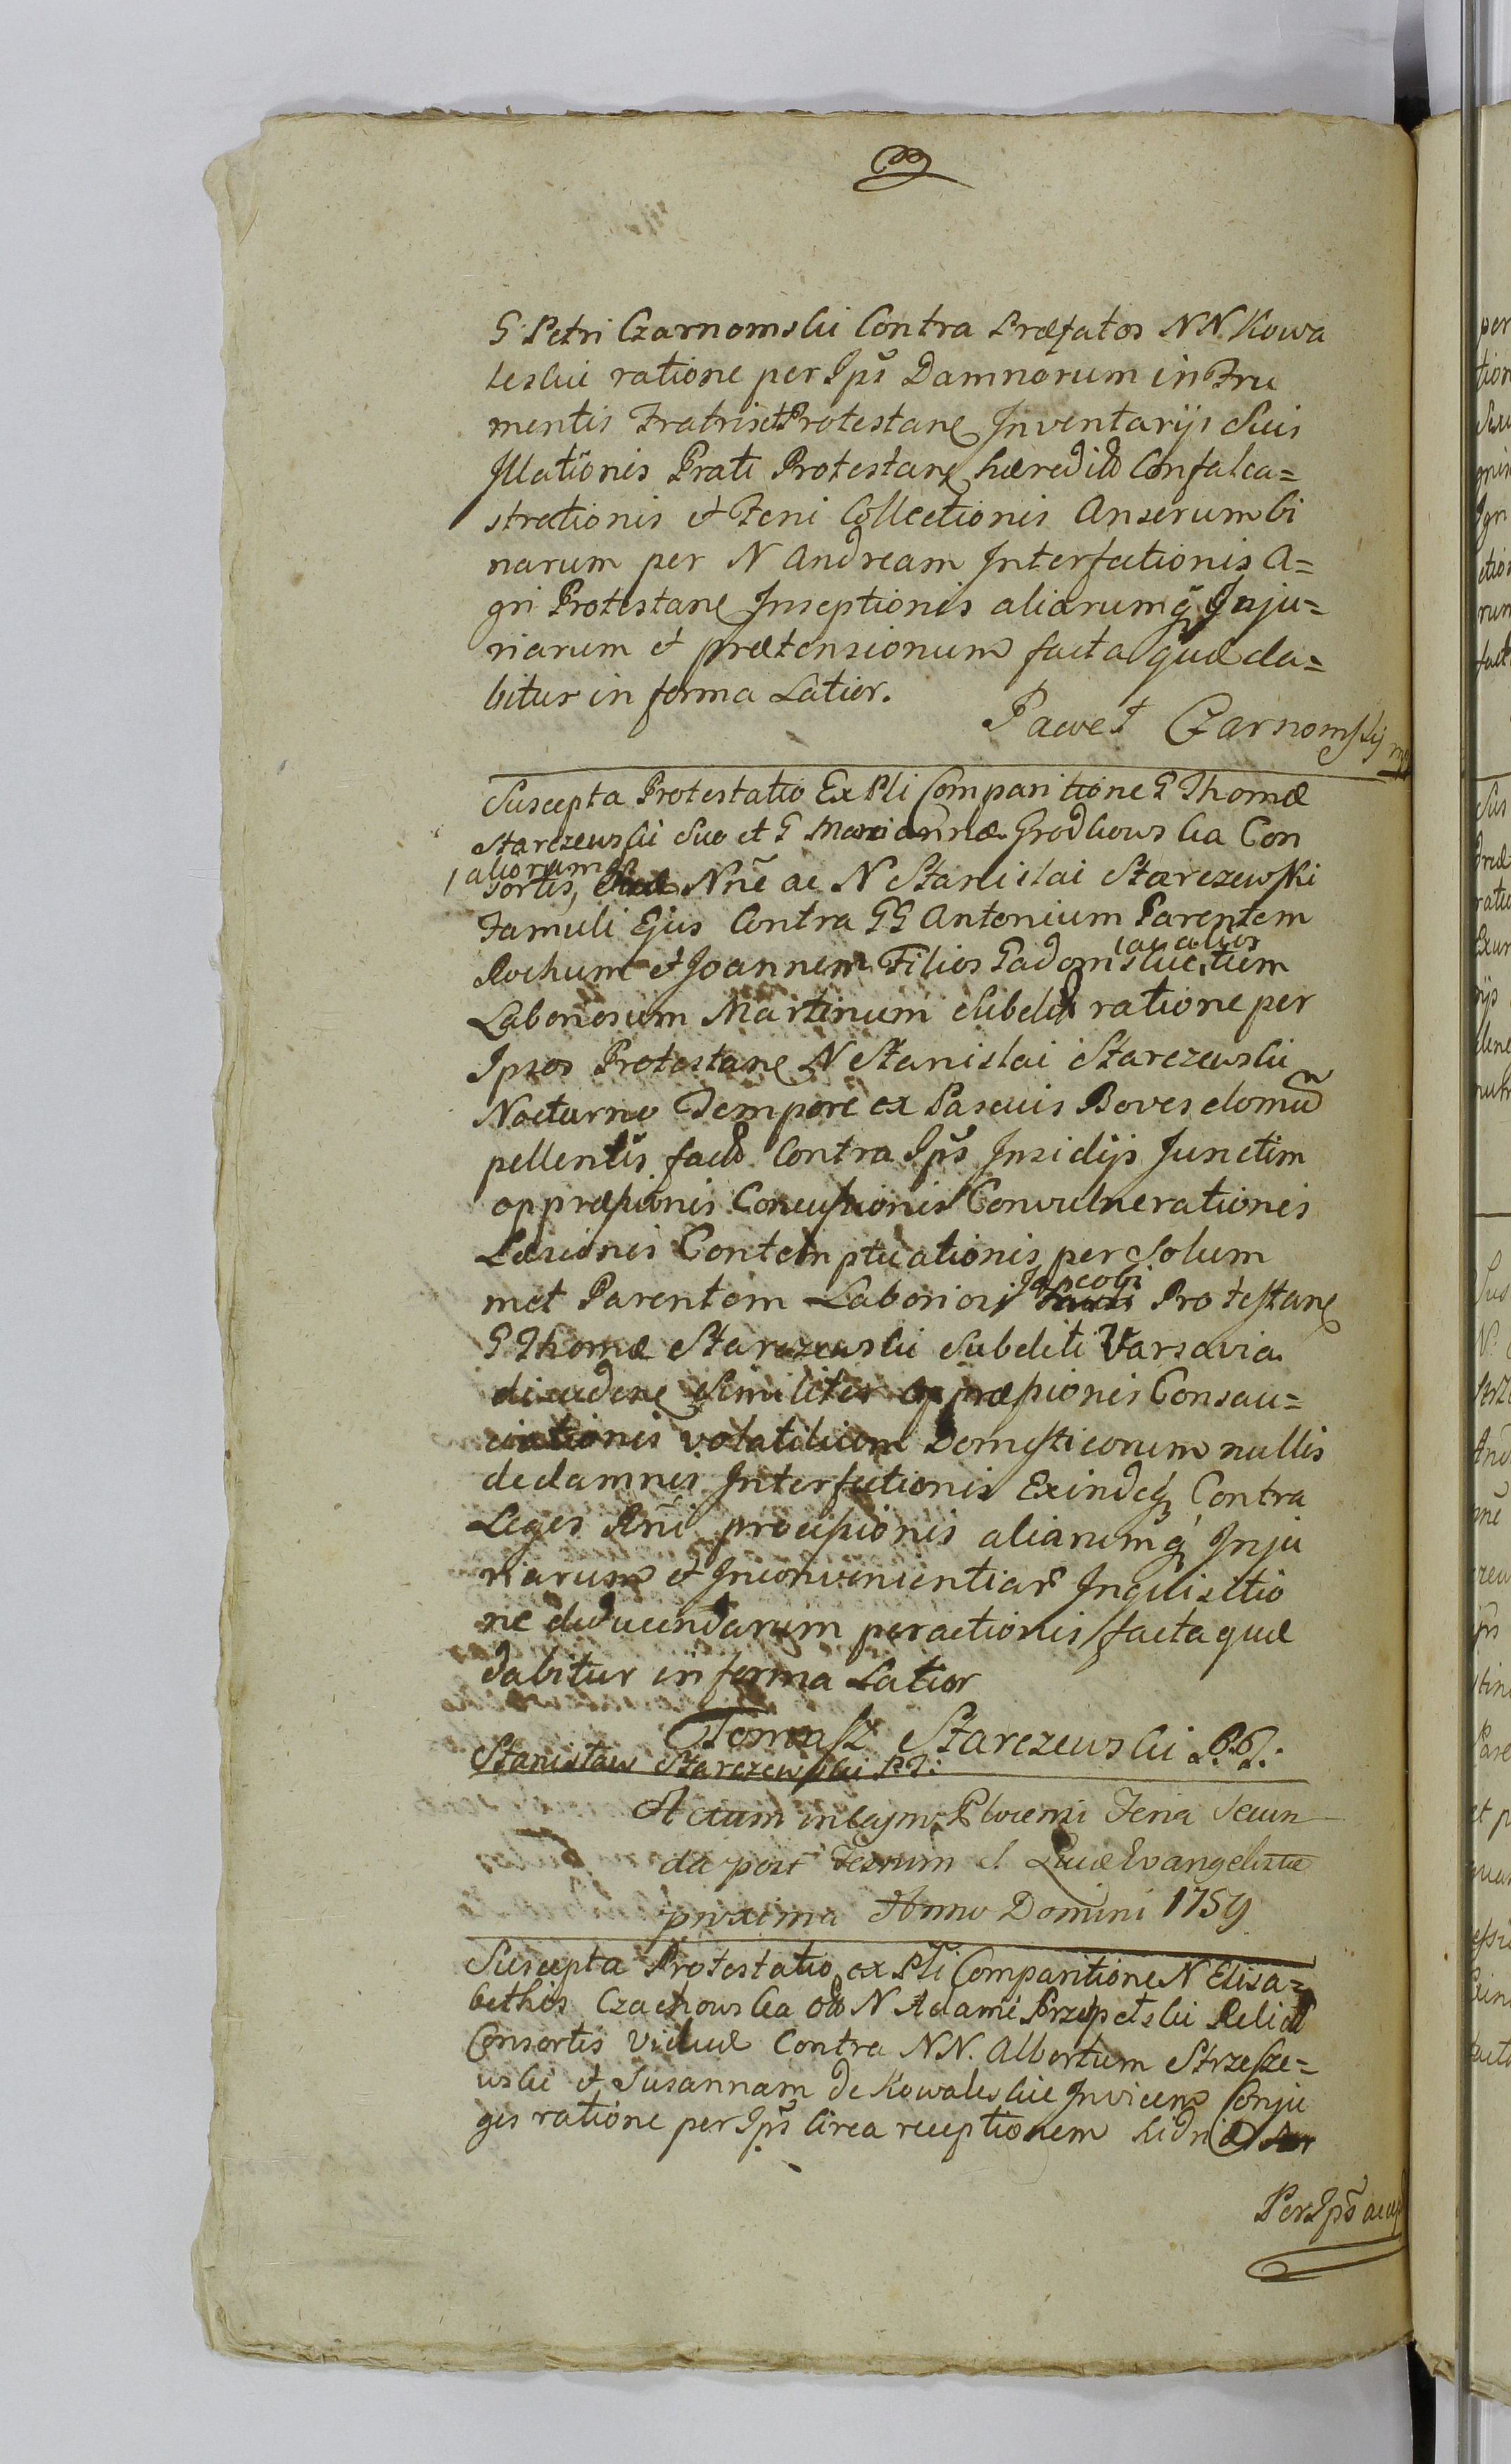 G Petri Czarnomski Contra Præfatos NN. Kowa
leskie ratione per Ips Damnorum in Fru
mentis Fratris et Protestane Inventarijs Suis
Illationis Prati Protestane hæredit Confalca=
strationis et Feni Collectionis Anserum bi
narum per N Andream Interfectionis A=
gri Protestane Inseptionis aliarumq Inju=
riarum et prætensionum facta quæ da=
bitur in forma Latior.
Paweł Czarnomskij mp
Suscepta Protestatio Ex Pli Comparitione G Thomæ
Starczewski Suo et G Mariannæ Grodkowska Con
aliorum
sortis, Nñe ac N Stanislai Starczewski
Famuli Ejus Contra GG Antonium Parentem
ac alios
Rochum et Joannem Filios Gadomskie, tum
Laboriosum Martinum Subdit ratione per
Ipsos Protestane N Stanislai Starczewski
Nocturno Tempore ex Pascuis Boves domu
pellentis facto Contra Ips Insidijs Junctim
oppræssionis Concussionis Convulnerationis
Læsionis Contemptuationis per Solum
Jacobi
met Parentem Laboriosi Protestane
G Thomæ Starczewski Subditi Varsavia
discedene Similiter oppræssionis Consau=
ciationis volatilium Domesticorum nullis
de damnis Interfectionis Exindeq Contra
Leges Rñi processionis aliarumq Inju
riarum et Inconvenientiar Inquisitio
ne deducendarum peractionis facta quæ
dabitur in forma Latior
Tomasz Starczewski P.T.
Stanisław Starczewski P.T:
Actum in Plocensi Feria Secun
da post Festum S Lucæ Evangelistæ
proxima Anno Domini 1759
Suscepta Protestatio ex Pli Comparitione N Elisa=
bethis Czachowska N Adami Relict
Consortis Viduæ Contra NN. Albertum Strzesze=
wski et Susannam de Kowaleskie Invicem Conju
ges ratione per Ips Circa receptionem
Per Ips